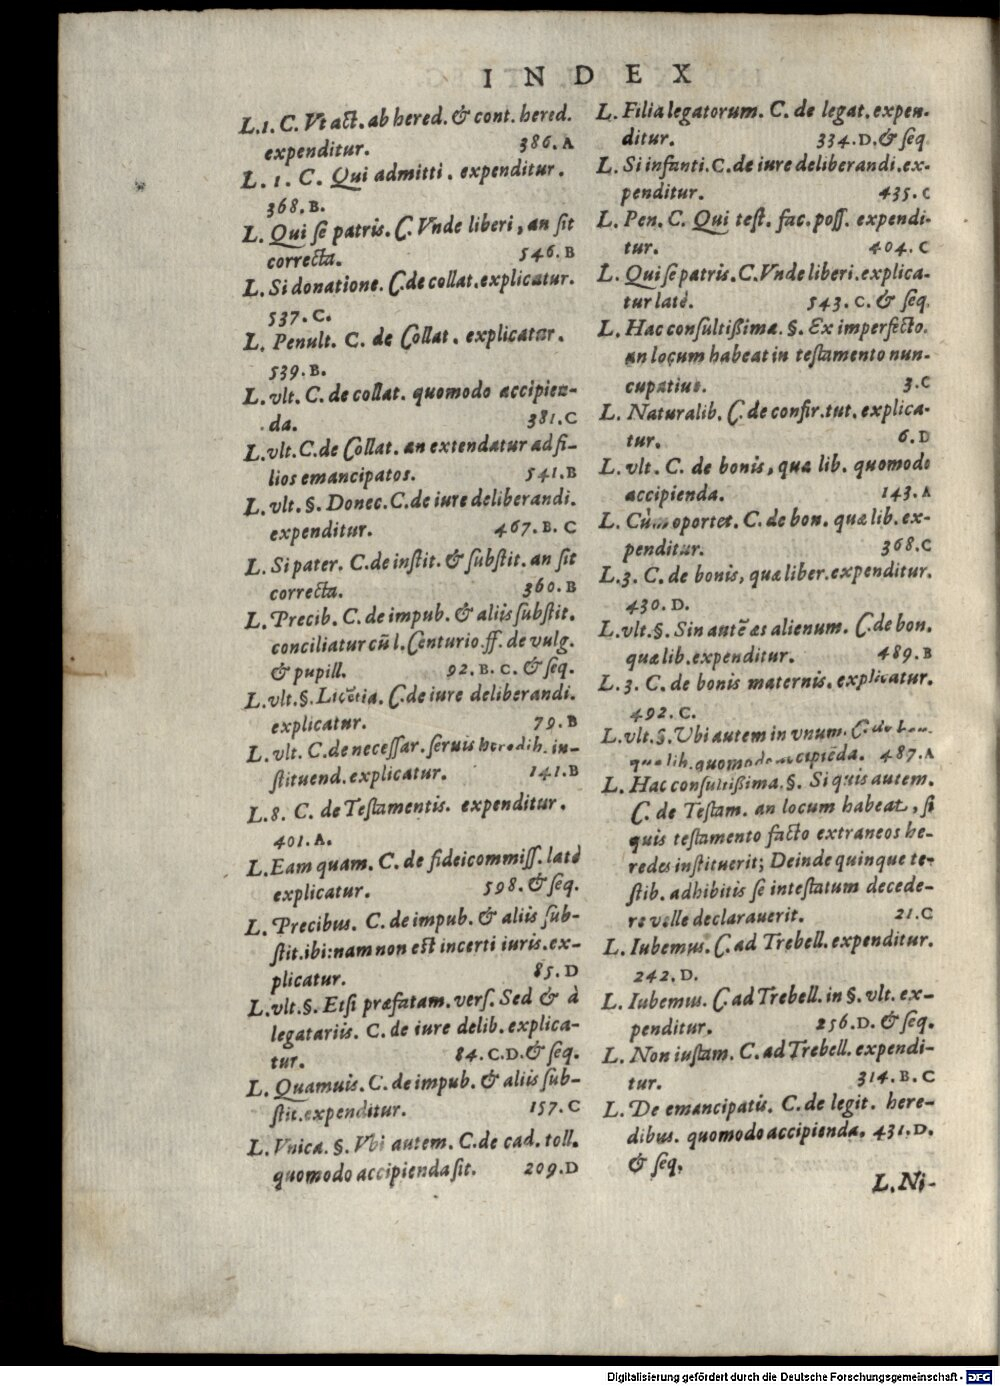 INDEX
L.1. C. Vt act. ab hered. & cont. hered.
expenditur. 386.A
L. 1. C. Qui admitti. expenditur.
368.B.
L. Qui se patris. C. Vnde liberi, an sit
correcta. 546.B
L. Si donatione. C. de collat. explicatur.
537.C.
L. Penult. C. de Collat. explicatur.
539.B.
L. vlt. C. de collat. quomodo accipien-
da. 381.C
L. vlt. C. de Collat. an extendatur ad fi-
lios emancipatos. 541.B
L. vlt. §. Donec. C. de iure deliberandi.
expenditur. 467.B.C
L. Si pater. C. de instit. & substit. an sit
correcta. 360.B
L. Precib. C. de impub. & aliis substit.
conciliatur cũ l. Centurio. ff. de vulg.
& pupill. 92.B.C. & seq.
L. vlt. §. Licẽtia. C. de iure deliberandi.
explicatur. 79.B
L. vlt. C. de necessar. seruis heredib. in-
stituend. explicatur. 141.B
L. 8. C. de Testamentis. expenditur.
401.A.
L. Eam quam. C. de fideicommiss. latè
explicatur. 598. & seq.
L. Precibus. C. de impub. & aliis sub-
stit. ibi: nam non est incerti iuris. ex-
plicatur. 85.D
L. vlt. §. Etsi præfatam. vers. Sed & à
legatariis. C. de iure delib. explica-
tur. 84.C.D. & seq.
L. Quamuis. C. de impub. & aliis sub-
stit. expenditur. 157.C
L. Vnica. §. Vbi autem. C. de cad. toll.
quomodo accipienda sit. 209.D
L. Filia legatorum. C. de legat. expen-
ditur. 334.D. & seq.
L. Si infanti. C. de iure deliberandi. ex-
penditur. 435.C
L. Pen. C. Qui test. fac. poss. expendi-
tur. 404.C
L. Qui se patris. C. Vnde liberi. explica-
tur latè. 543.C. & seq.
L. Hac consultißima. §. Ex imperfecto.
an locum habeat in testamento nun-
cupatiuo. 3.C
L. Naturalib. C. de confir. tut. explica-
tur. 6.D
L. vlt. C. de bonis, quæ lib. quomodo
accipienda. 143.A
L. Cùm oportet. C. de bon. quæ lib. ex-
penditur. 368.C
L. 3. C. de bonis, quæ liber. expenditur.
430.D.
L. vlt. §. Sin autẽ æs alienum. C. de bon.
quæ lib. expenditur. 489.B
L. 3. C. de bonis maternis. explicatur.
492.C.
L. vlt. §. Vbi autem in vnum. C. de bon.
quæ lib. quomodo accipiẽda. 487.A
L. Hac consultißima. §. Si quis autem.
C. de Testam. an locum habeat, si
quis testamento facto extraneos he-
redes instituerit; Deinde quinque te-
stib. adhibitis se intestatum decede-
re velle declarauerit. 21.C
L. Iubemus. C. ad Trebell. expenditur.
242.D.
L. Iubemus. C. ad Trebell. in §. vlt. ex-
penditur. 256.D. & seq.
L. Non iustam. C. ad Trebell. expendi-
tur. 314.B.C
L. De emancipatis. C. de legit. here-
dibus. quomodo accipienda. 431.D.
& seq.
L. Ni-
Digitalisierung gefördert durch die Deutsche Forschungsgemeinschaft - DFG